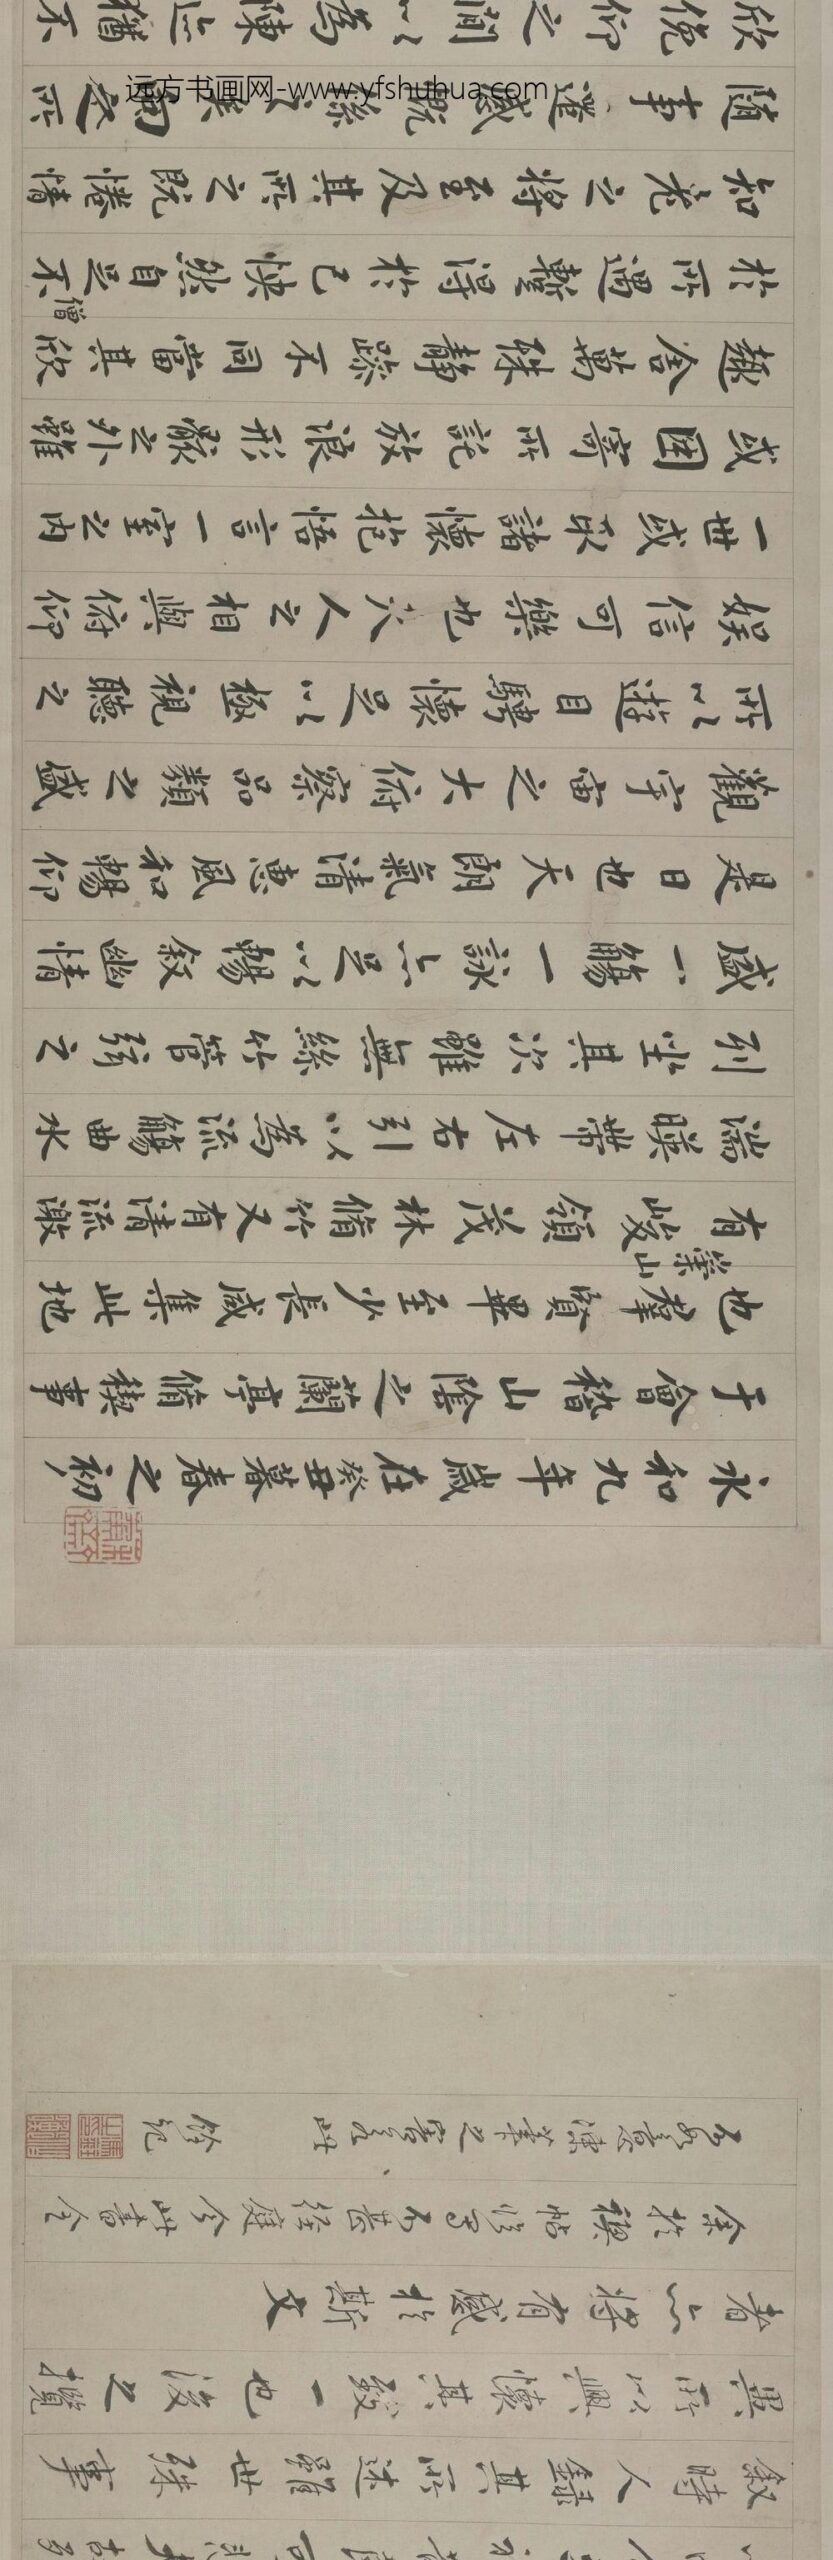 永和九年歲在癸丑暮春之初
于會稽山陰之蘭亭脩禊事
也羣賢畢至少長咸集此地
有崇山峻領茂林脩竹又有清流激
湍暎帶左右引以為流觴曲水
列坐其次雖無絲竹管弦之
盛一觴一詠亦足以暢敘幽情
是日也天朗氣清惠風和暢仰
觀宇宙之大俯察品類之盛
所以遊目騁懷足以極視聽之
娛信可樂也夫人之相與俯仰
一世或取諸懷抱悟言一室之內
或因寄所託放浪形骸之外雖
趣舍萬殊靜躁不同當其欣
僧
於所遇暫得於己怏然自足不
知老之將至及其所之既惓情
隨事遷感慨係之矣向之所
欣俛仰之閒以為陳迹猶不
敘時人錄其所述雖世殊事
異所以興懷其致一也後之攬
者亦將有感於斯文
余於禊帖臨寫不甚經庭今此書全
远方书画网-www.yfshuhua.com